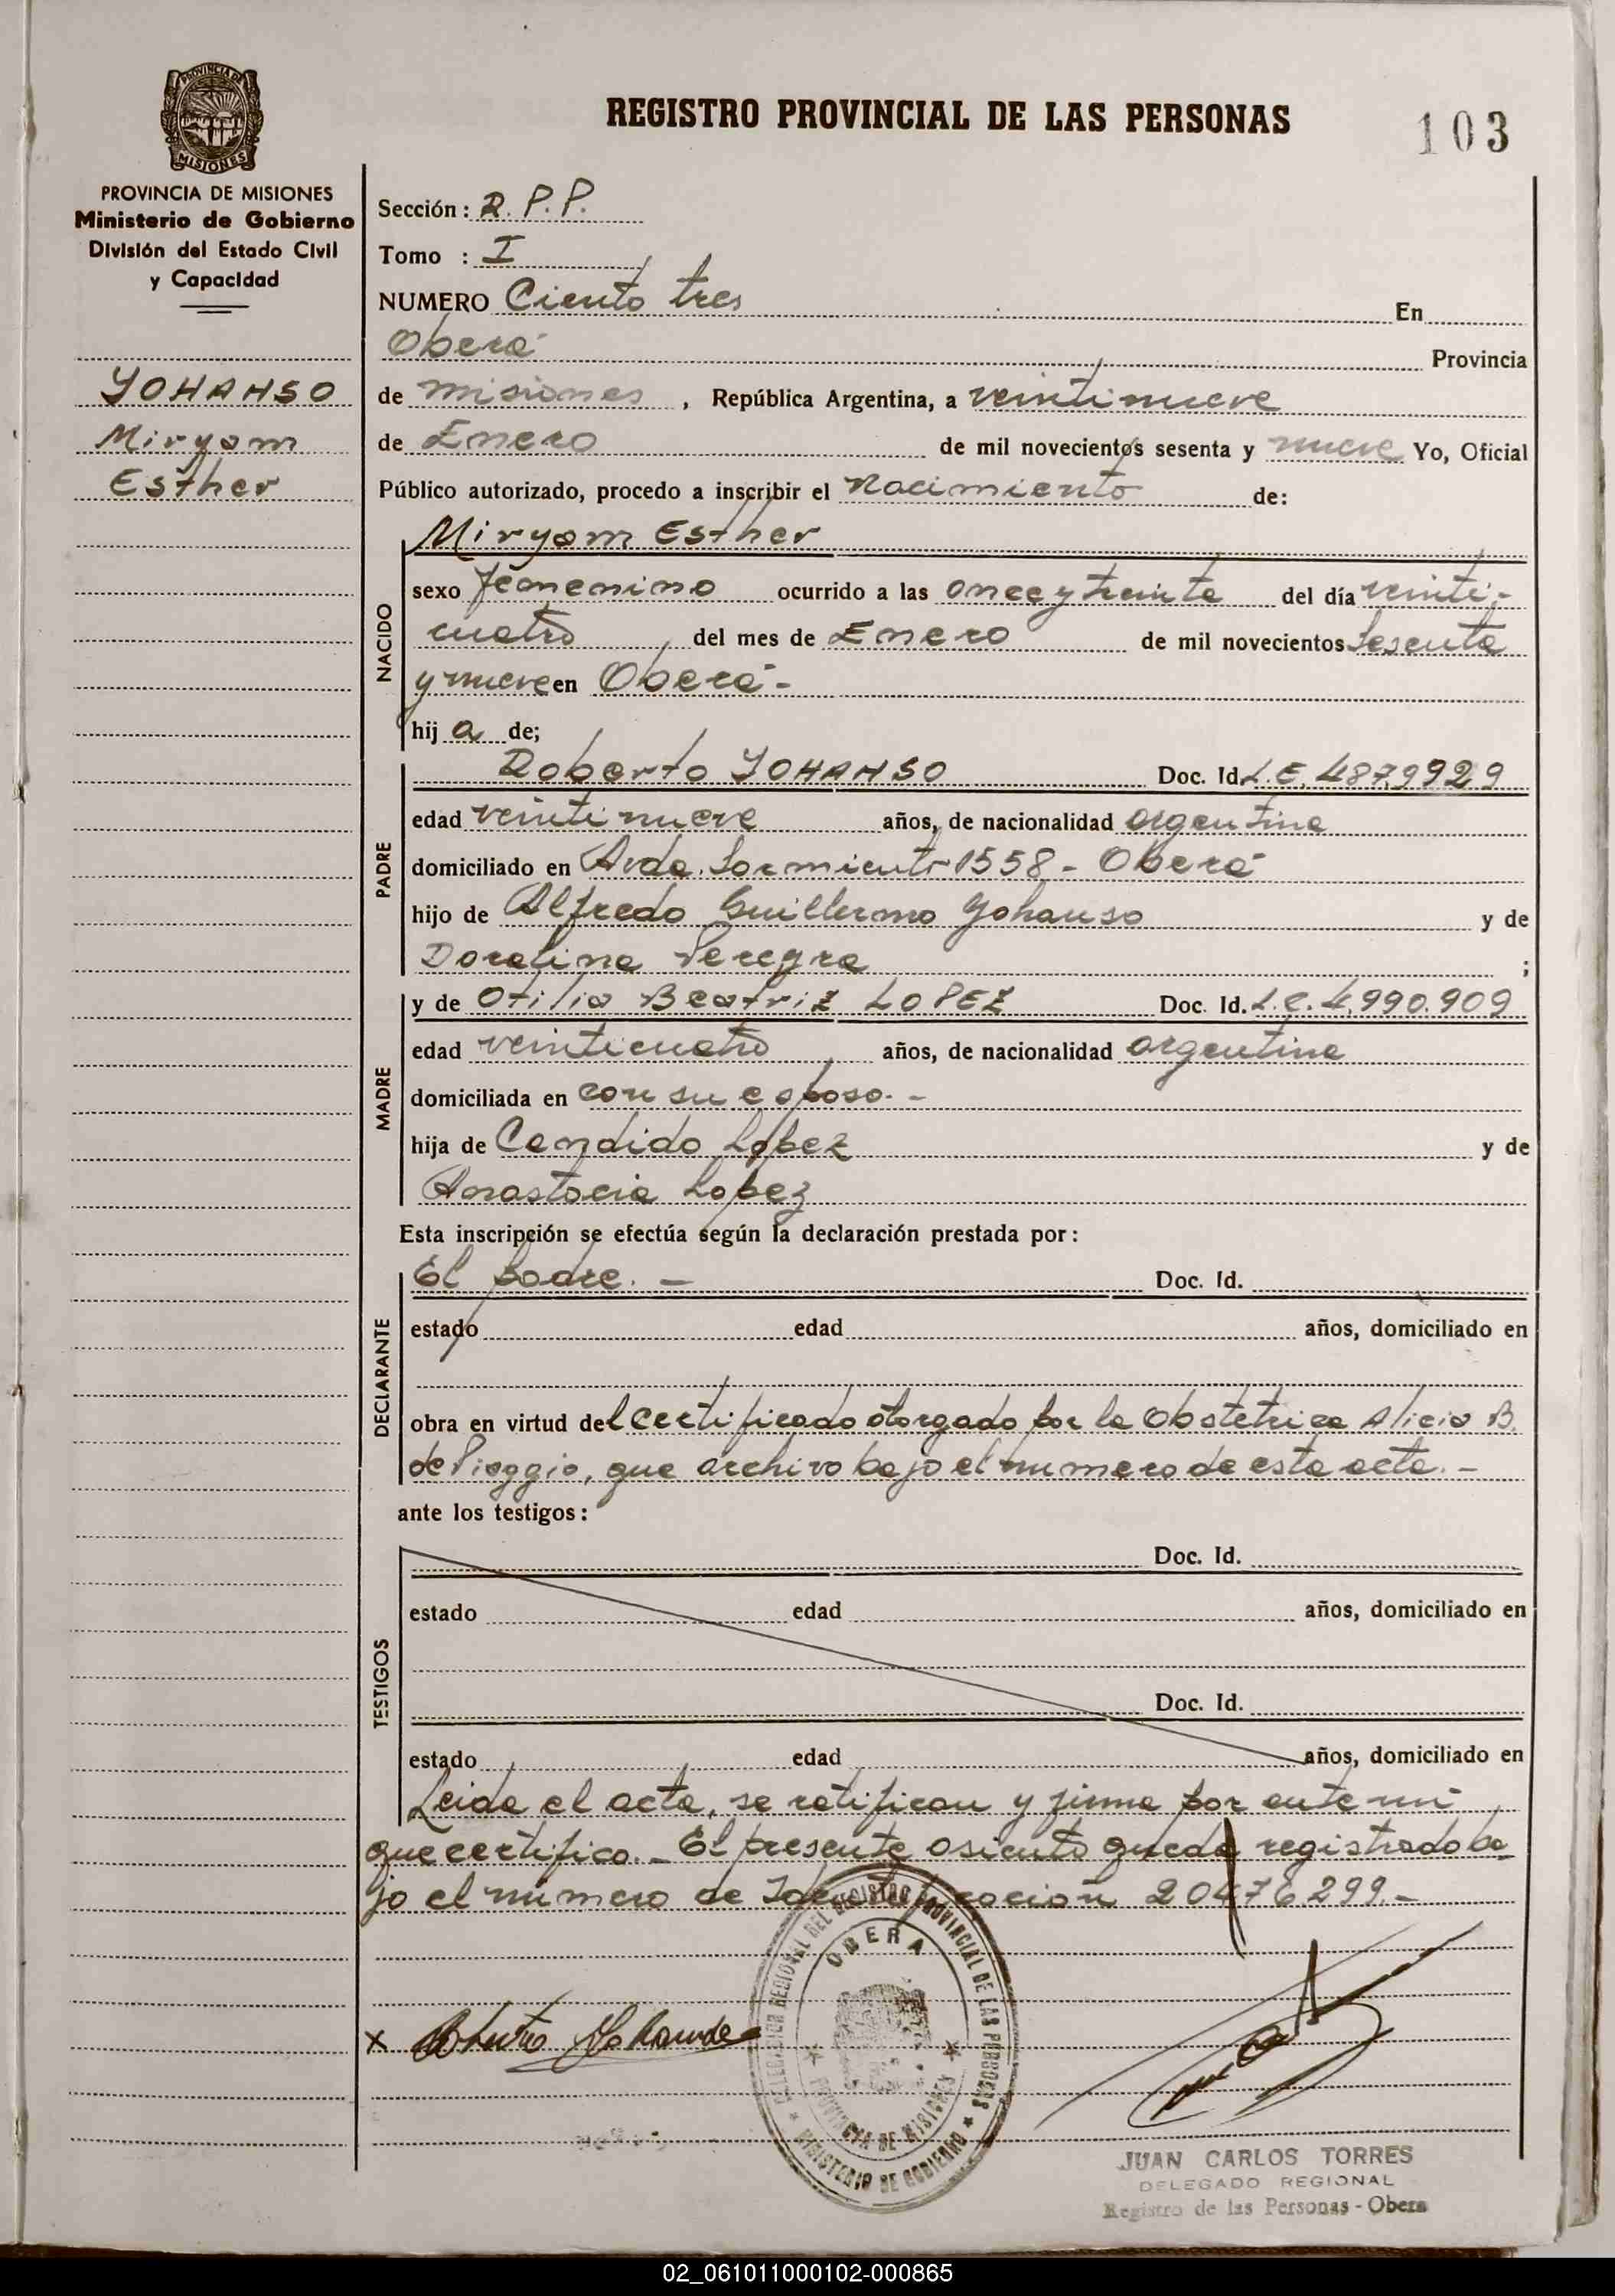 PROVINCIA DE MISIONES
REGISTRO PROVINCIAL DE LAS PERSONAS
103
PROVINCIA DE MISIONES
Ministerio de Gobierno
División del Estado Civil
y Capacidad
YOHANSO
Miryam
Esther
Sección: R. P. P.
Tomo : I
NUMERO Ciento tres En
Oberá Provincia
de Misiones, República Argentina, a veintinueve
de Enero de mil novecientos sesenta y nueve Yo, Oficial
Público autorizado, procedo a inscribir el Nacimiento de:
NACIDO
Miryam Esther
sexo femenino ocurrido a las once y treinta del día veinti-
cuatro del mes de Enero de mil novecientos Sesenta
y nueve en Oberá-
hij a de;
PADRE
Roberto YOHANSO Doc. Id. L.E. 4879929
edad veintinueve años, de nacionalidad argentina
domiciliado en Avda. Sarmiento 1558 - Oberá
hijo de Alfredo Guillermo Yohanso y de
Doralina ;
MADRE
y de Otilia Beatriz LOPEZ Doc. Id. L.C. 4.990.909
edad veinticuatro años, de nacionalidad argentina
domiciliada en con su esposo. -
hija de Candido Lopez y de
Anastacia Lopez
Esta inscripción se efectúa según la declaración prestada por:
DECLARANTE
El padre. - Doc. Id.
estado edad años, domiciliado en
obra en virtud del certificado otorgado por la Obstetrica Alicia B.
de Pioggio, que archivo bajo el numero de esta acta. -
ante los testigos:
TESTIGOS
Doc. Id.
estado edad años, domiciliado en
Doc. Id.
estado edad años, domiciliado en
Leida el acta, se ratifican y firma por ante mi
que certifico. - El presente asiento queda registrado ba-
jo el número de Identificación 20476299.-
DELEGACION REGIONAL DEL REGISTRO PROVINCIAL DE LAS PERSONAS
OBERA
PROVINCIA DE MISIONES
MINISTERIO DE GOBIERNO
x
JUAN CARLOS TORRES
DELEGADO REGIONAL
Registro de las Personas - Obera
02_061011000102-000865